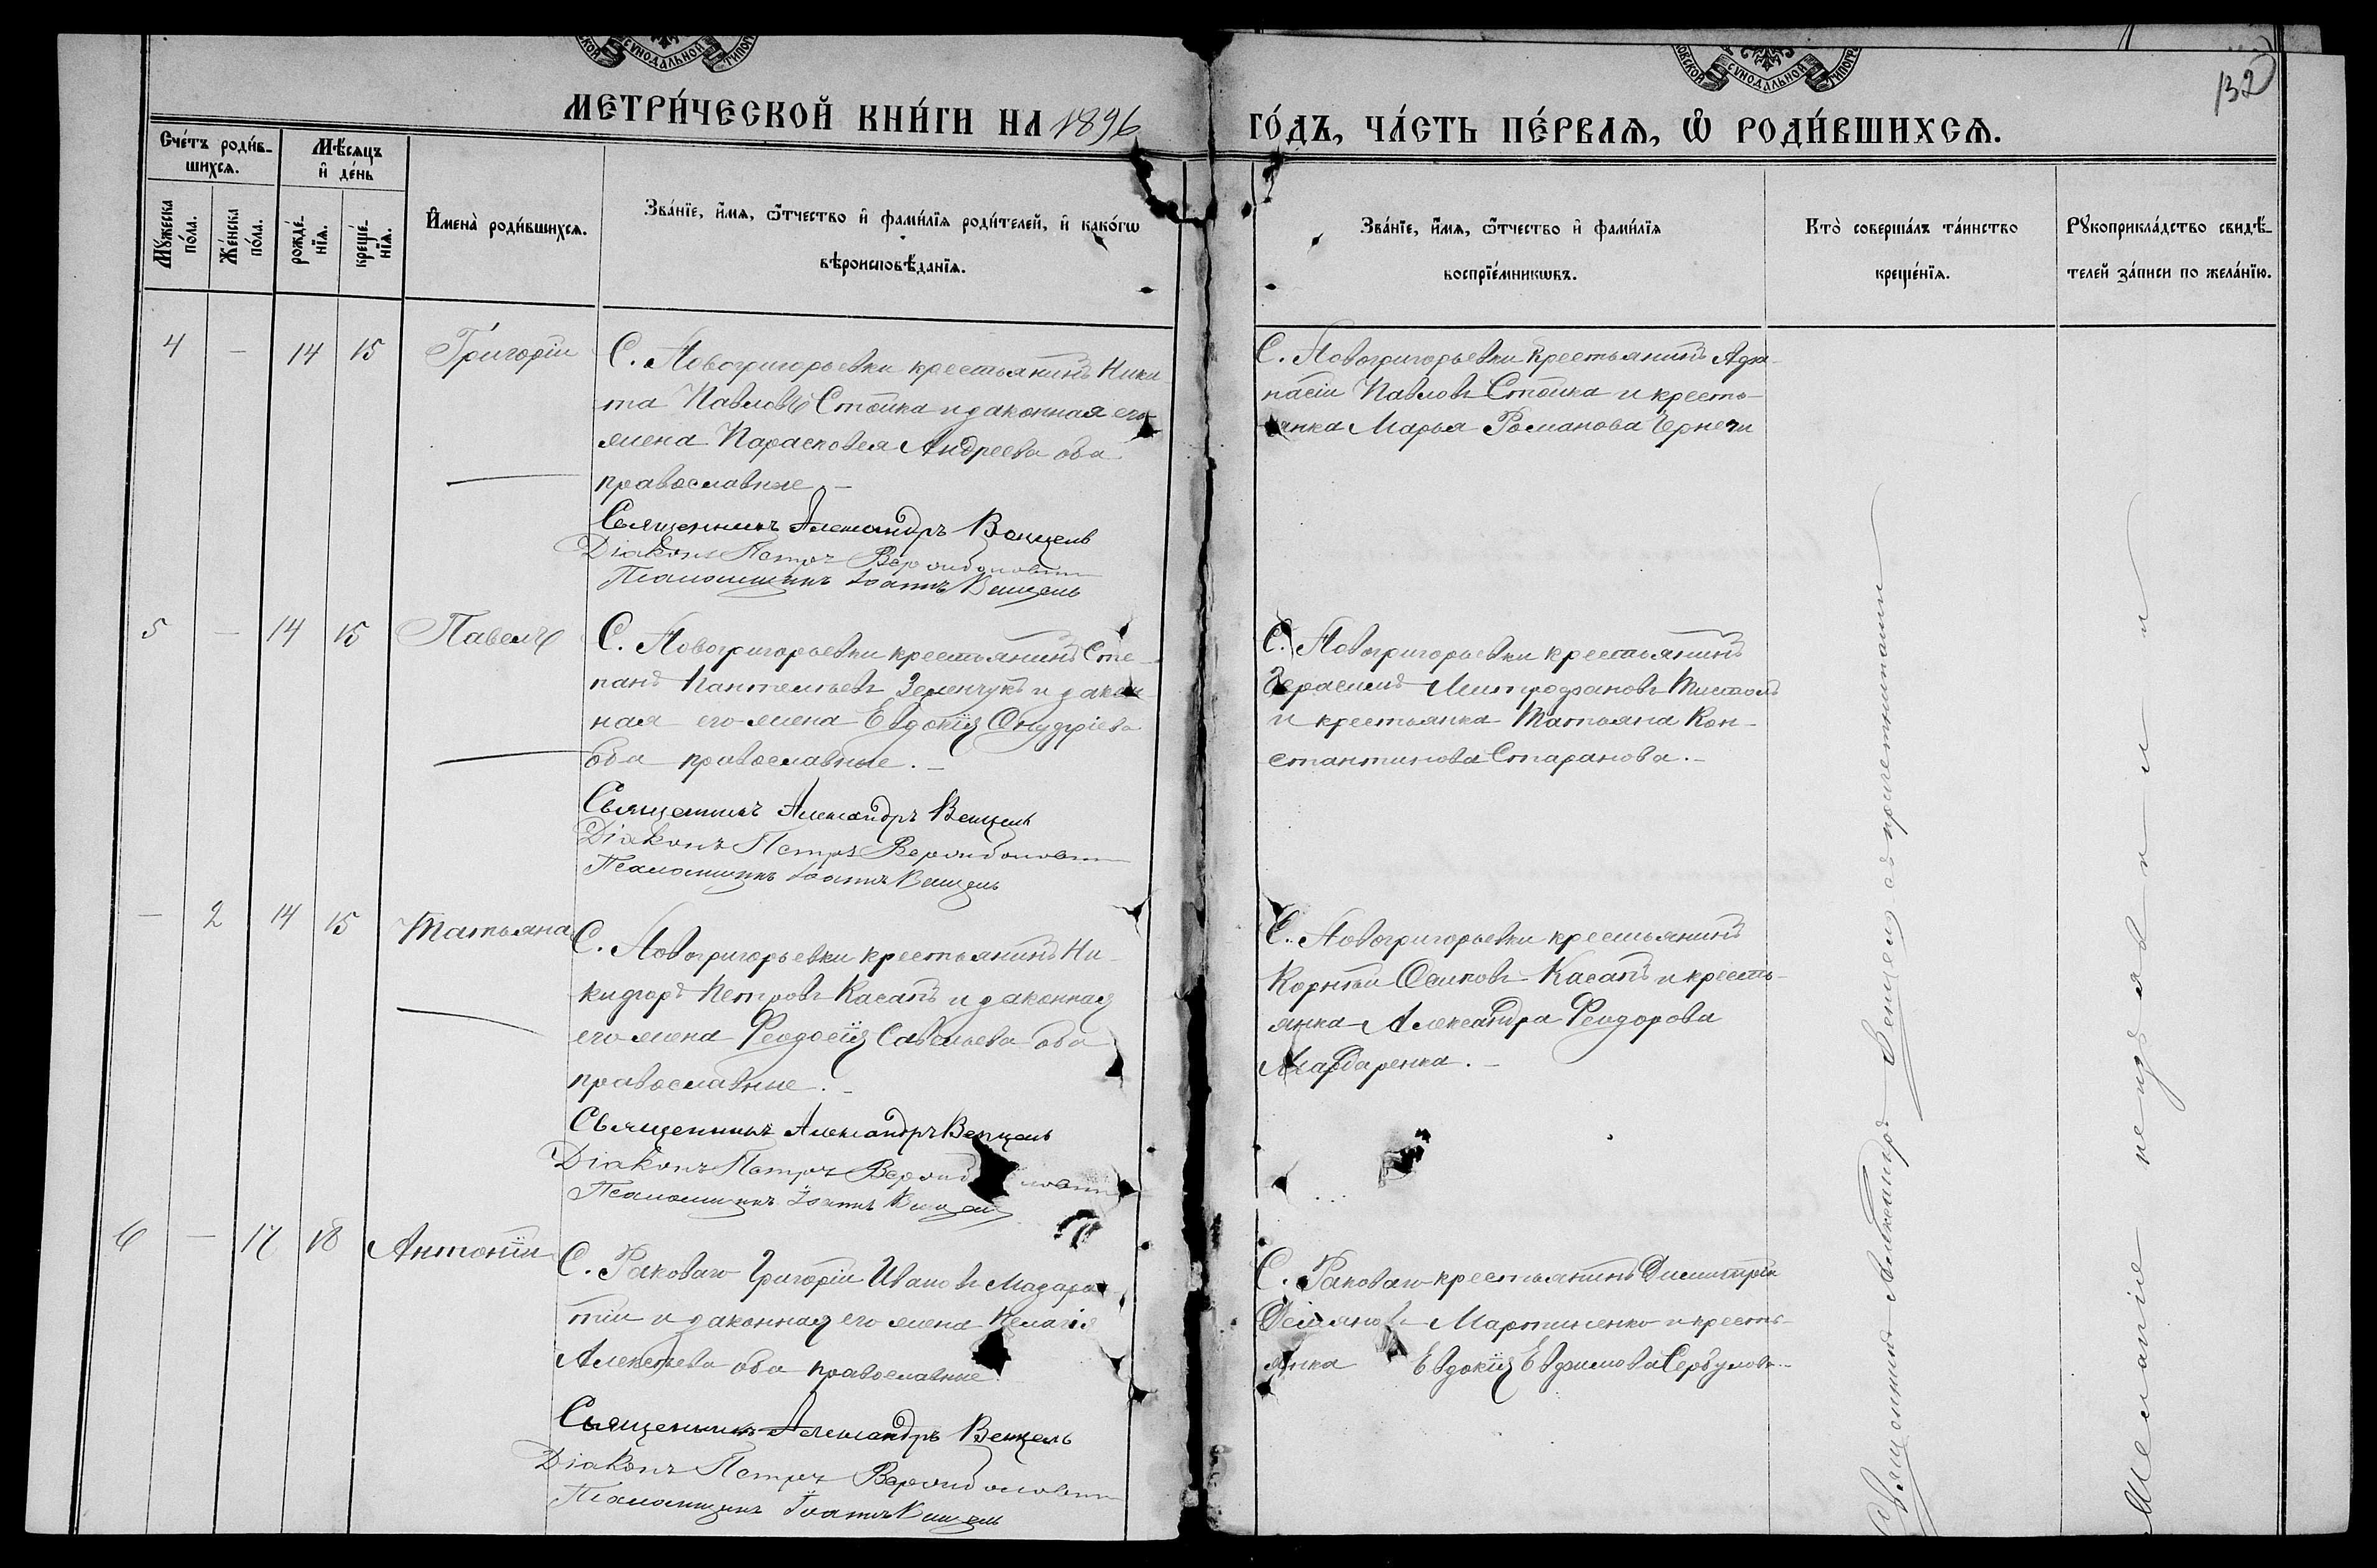 МЕТРИ́ЧЕСКОЙ КНИ́ГИ НА 1896
ГО́ДЪ, ЧА́СТЬ ПЕ́РВАЯ, Ѡ РОДИ́ВШИХСЯ.
132
Сче́тъ роди́в-
шихся.
Мѣ́сяцъ
и де́нь
Му́жеска
по́ла.
Же́нска
по́ла.
рожде́-
нїя.
креще́-
нїя.
Имена̀ роди́вшихся.
Зва́нїе, и́мя, ѻ́тчество и фами́лїя роди́телей, и како́гѡ
вѣроисповѣ́данїя.
Зва́нїе, и́мя, ѻ́тчество и фами́лїя
воспрїе́мникѡвъ.
Кто̀ соверша́лъ та́инство
креще́нїя.
Рꙋкоприкла́дство свидѣ́-
телей за́писи по жела́нїю.
4 — 14 15 Григорій
С. Новогригорьевки крестьянинъ Ники
та Павловъ Стойка и законная его
жена Парасковея Андреева оба
православные. —
Священникъ Александръ Венцель
Діаконъ Петръ
Псаломщикъ Іоаннъ Венцель
С. Новогригорьевки крестьянинъ
Павловъ Стойка и кресть-
янка Марья Романова
5 — 14 15 Павелъ
С. Новогригорьевки крестьянинъ Сте-
панъ Пантелеевъ Зеленчукъ и закон-
ная его жена Евдокія Онуфріева
оба православные. —
Священникъ Александръ Венцель
Діаконъ Петръ
Псаломщикъ Іоаннъ Венцель
С. Новогригорьевки крестьянинъ
Герасимъ Митрофановъ
и крестьянка Татьяна Кон-
стантинова Старанова. —
— 2 14 15 Татьяна
С. Новогригорьевки крестьянинъ Ни-
кифоръ Петровъ Касапъ и законная
его жена Феодосія Савельева оба
православные. —
Священникъ Александръ Венцель
Діаконъ Петръ
Псаломщикъ Іоаннъ Венцель
С. Новогригорьевки крестьянинъ
Корнѣй Осиповъ Касапъ и кресть-
янка Александра Феодорова
6 — 17 18 Антоній
С. Раковаго Григорій Ивановъ
и законная его жена Пелагія
Алексѣева оба православные.
Священникъ Александръ Венцель
Діаконъ Петръ
Псаломщикъ Іоаннъ Венцель
С. Раковаго крестьянинъ Димитрій
Мартиненко и кресть-
янка Евдокія Евфимова
Священникъ Александръ Венцель съ причетниками
Желаніе не изъявили